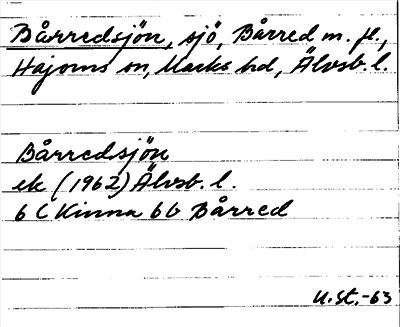 Bårredsjön, sjö, Bårred m. fl.,
Hajoms sn, Marks hd, Älvsb. l.
Bårredsjön
ek (1962) Älvsb. l.
6 C Kinna 6 b Bårred
U.St.-63